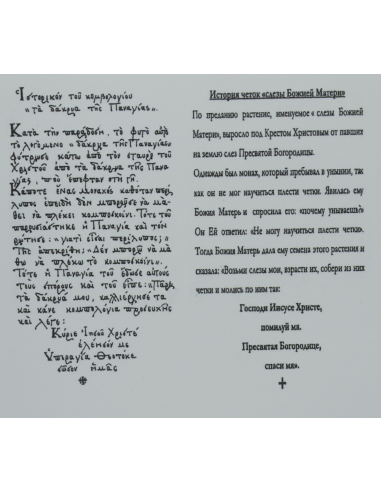 Ἱστορικὸν τοῦ κομβολογίου
"τὰ δάκρυα τῆς Παναγίας".
Κατὰ τὴν παράδοση, τὸ φυτὸ αὐτὸ
τὸ λεγόμενο "δάκρυα τῆς Παναγίας"
φύτρωσε κάτω ἀπὸ τὸν σταυρὸ τοῦ
Χριστοῦ ἀπὸ τὰ δάκρυα τῆς Πανα-
γίας, ποὺ ἔπεφταν στὴ γῆ.
Κάποτε ἕνας μοναχὸς καθόταν περί-
λυπος ἐπειδὴ δὲν μποροῦσε νὰ μά-
θει νὰ πλέκει κομποσκοίνι. Τότε τοῦ
παρουσιάστηκε ἡ Παναγία καὶ τὸν
ρώτησε: "γιατί εἶσαι περίλυπος;"
Τῆς ἀπεκρίθη: "Δὲν μπορῶ νὰ μά-
θω νὰ πλέκω τὸ κομποσκοίνι".
Τότε ἡ Παναγία τοῦ ἔδωσε αὐτοὺς
τοὺς σπόρους καὶ τοῦ εἶπε: "Πάρε
τὰ δάκρυά μου, καλλιέργησέ τα
καὶ κάνε κομπολόγια προσευχῆς
καὶ λέγε:
Κύριε Ἰησοῦ Χριστὲ
ἐλέησόν με
Ὑπεραγία Θεοτόκε
σῶσον ἡμᾶς
История четок «слезы Божией Матери»
По преданию растение, именуемое «слезы Божией
Матери», выросло под Крестом Христовым от павших
на землю слез Пресвятой Богородицы.
Однажды был монах, который пребывал в унынии, так
как он не мог научиться плести четки. Явилась ему
Божия Матерь и спросила его: «почему унываешь?»
Он Ей ответил: «Не могу научиться плести четки».
Тогда Божия Матерь дала ему семена этого растения и
сказала: «Возьми слезы мои, взрасти их, собери из них
четки и молись по ним так:
Господи Иисусе Христе,
помилуй мя.
Пресвятая Богородице,
спаси мя».